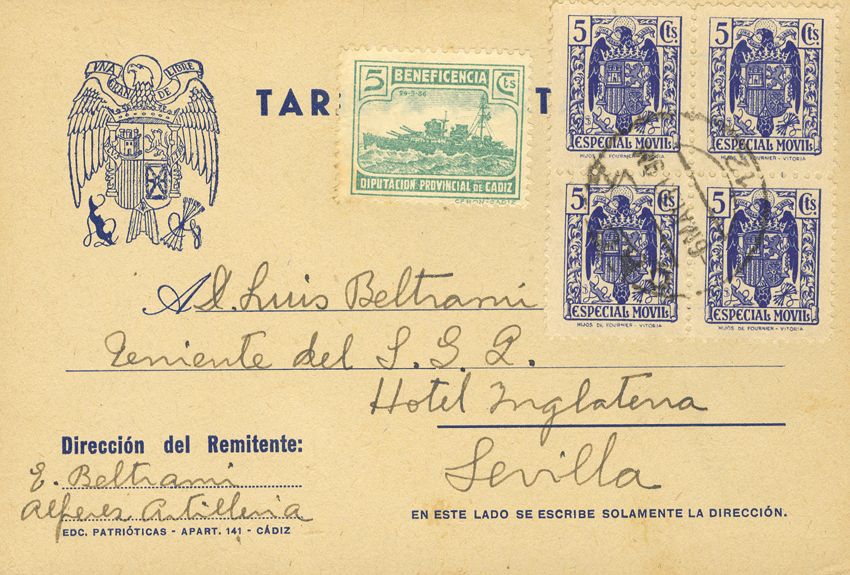 UNA GRANDE LIBRE
TAR T
5 BENEFICENCIA Cts
24-3-36
DIPUTACION PROVINCIAL DE CADIZ
5 Cts.
ESPECIAL MOVIL
HIJOS DE FOURNIER - VITORIA
5 Cts.
ESPECIAL MOVIL
HIJOS DE FOURNIER - VITORIA
5 Cts.
ESPECIAL MOVIL
HIJOS DE FOURNIER - VITORIA
5 Cts.
ESPECIAL MOVIL
HIJOS DE FOURNIER - VITORIA
A D. Luis Beltrami
Teniente del S. G. R.
Hotel Inglaterra
Sevilla
Dirección del Remitente:
E. Beltrami
Alferez Artilleria
EDC. PATRIÓTICAS - APART. 141 - CÁDIZ
EN ESTE LADO SE ESCRIBE SOLAMENTE LA DIRECCIÓN.